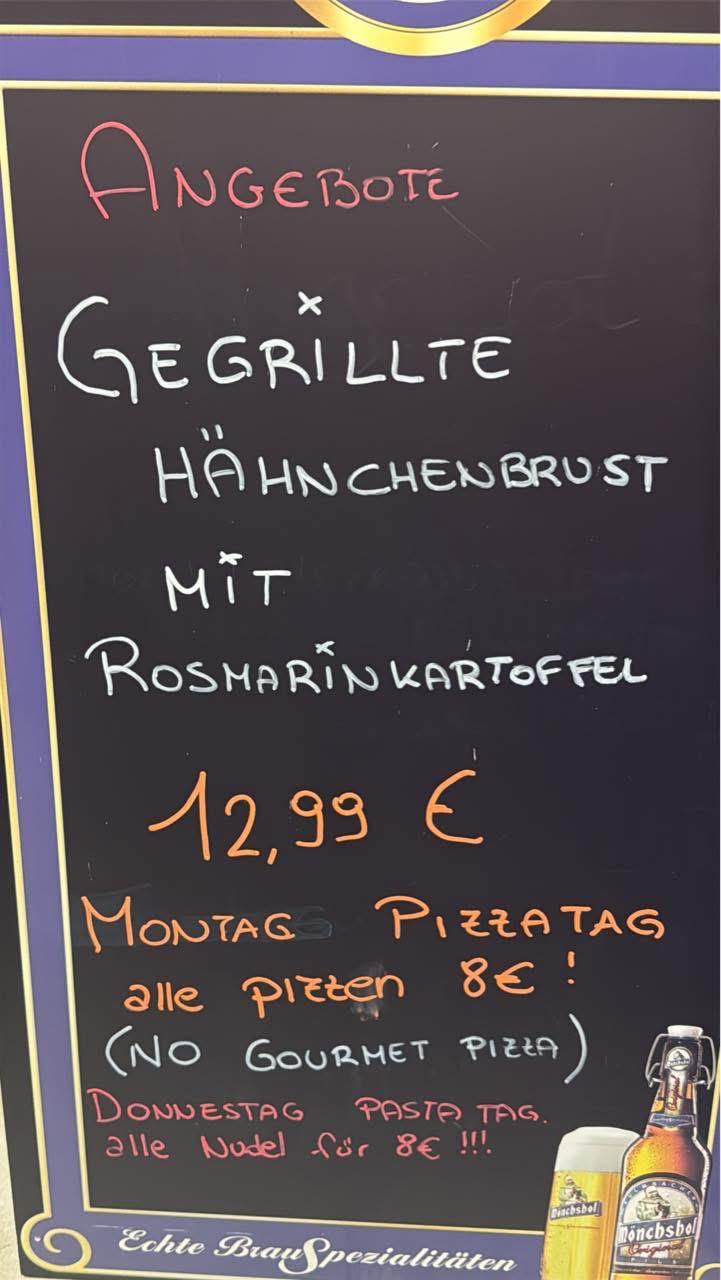 ANGEBOTE
GEGRILLTE
HÄHNCHENBRUST
MIT
ROSMARINKARTOFFEL
12,99 €
MONTAG PIZZATAG
alle pizzen 8€ !
(NO GOURMET PIZZA)
DONNESTAG PASTA TAG.
alle Nudel für 8€ !!!
Mönchshof
Mönchshof
Echte BrauSpezialitäten